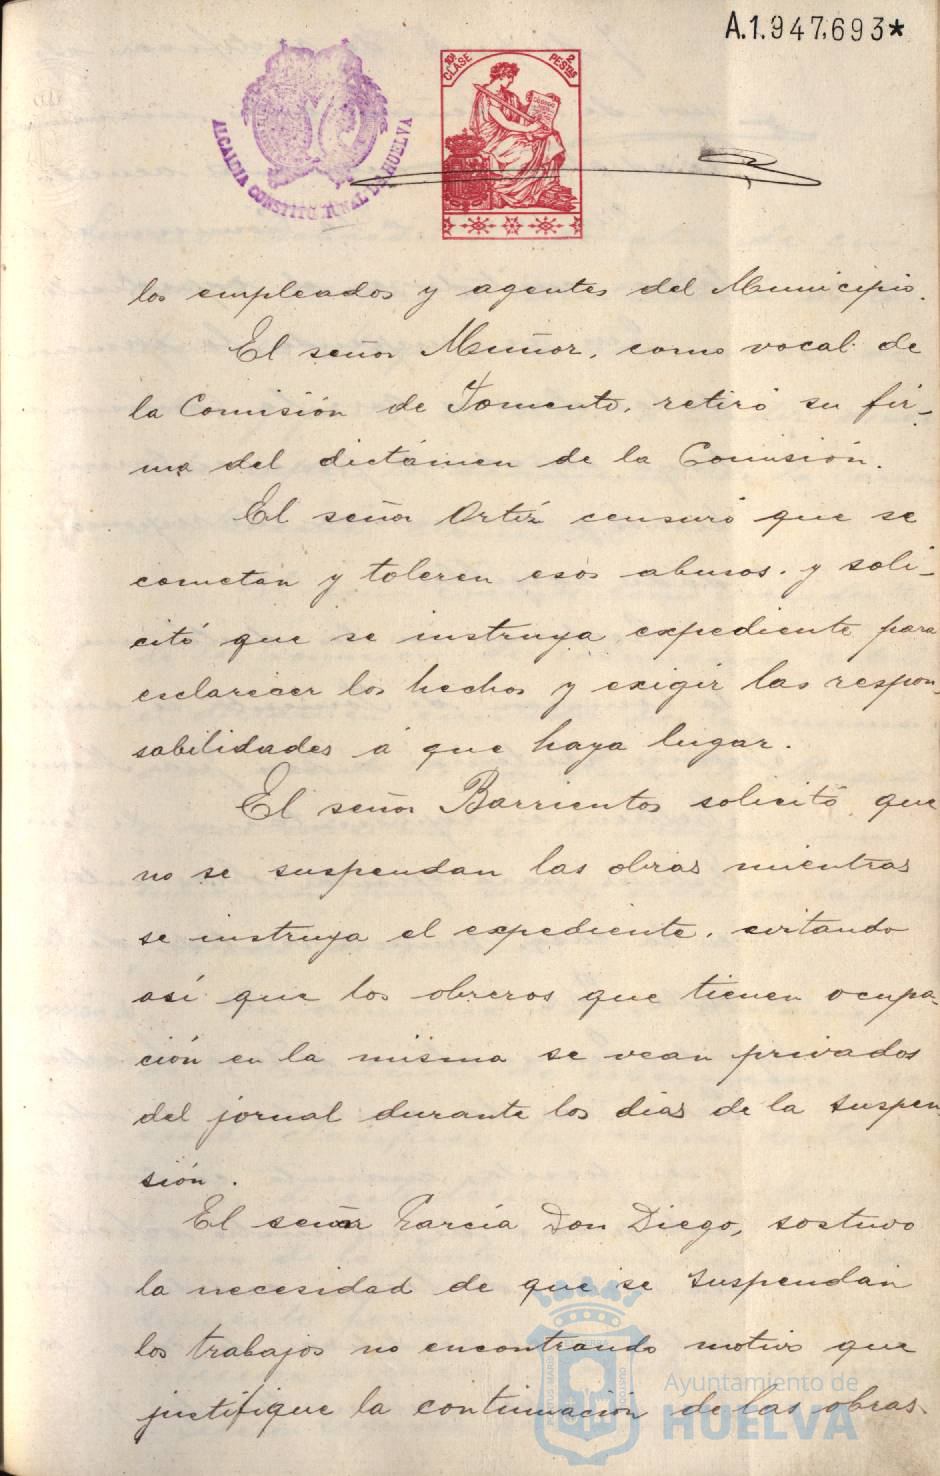 A.1.947.693*
10ª CLASE
2 PESTAS
ALCALDIA CONSTITUCIONAL DE HUELVA
los empleados y agentes del Municipio.
El señor Muñoz, como vocal de
la Comisión de Fomento, retiró su fir-
ma del dictámen de la Comisión.
El señor Ortiz censuró que se
cometan y toleren esos abusos. y soli-
citó que se instruya expediente para
esclarecer los hechos y exigir las respon-
sabilidades á que haya lugar.
El señor Barrientos solicitó que
no se suspendan las obras mientras
se instruya el expediente. evitando
así que los obreros que tienen ocupa-
ción en la misma se vean privados
del jornal durante los días de la suspen-
sión.
El señor García Don Diego, sostuvo
la necesidad de que se suspendan
los trabajos no encontrando motivo que
justifique la continuación de las obras.
Ayuntamiento de
HUELVA